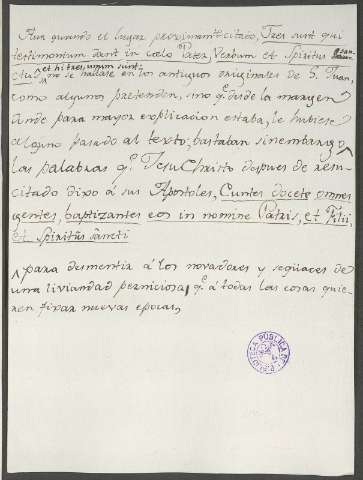 Aun quando el lugar proximam.te citado, Tres sunt qui
testimonium dant in cœlo Pater, Verbum et Spiritus Sanctus
et hi tres unum sunt:
no se hallase en los antiguos originales de S. Juan,
como algunos pretenden, sino q.e desde la margen
donde para mayor explicacion estaba, le hubiese
alguno pasado al texto; bastaban sinembargo
las palabras q.e Jesu Christo despues de resu-
citado dixo á sus Apostoles, Euntes docete omnes
gentes, baptizantes eos in nomine Patris, et Filii,
et Spiritûs Sancti
para desmentir á los novadores y seqüaces de
una liviandad perniciosa, q.e á todas las cosas quie-
ren fixar nuevas epocas,
BIBLIOTECA PÚBLICA DE